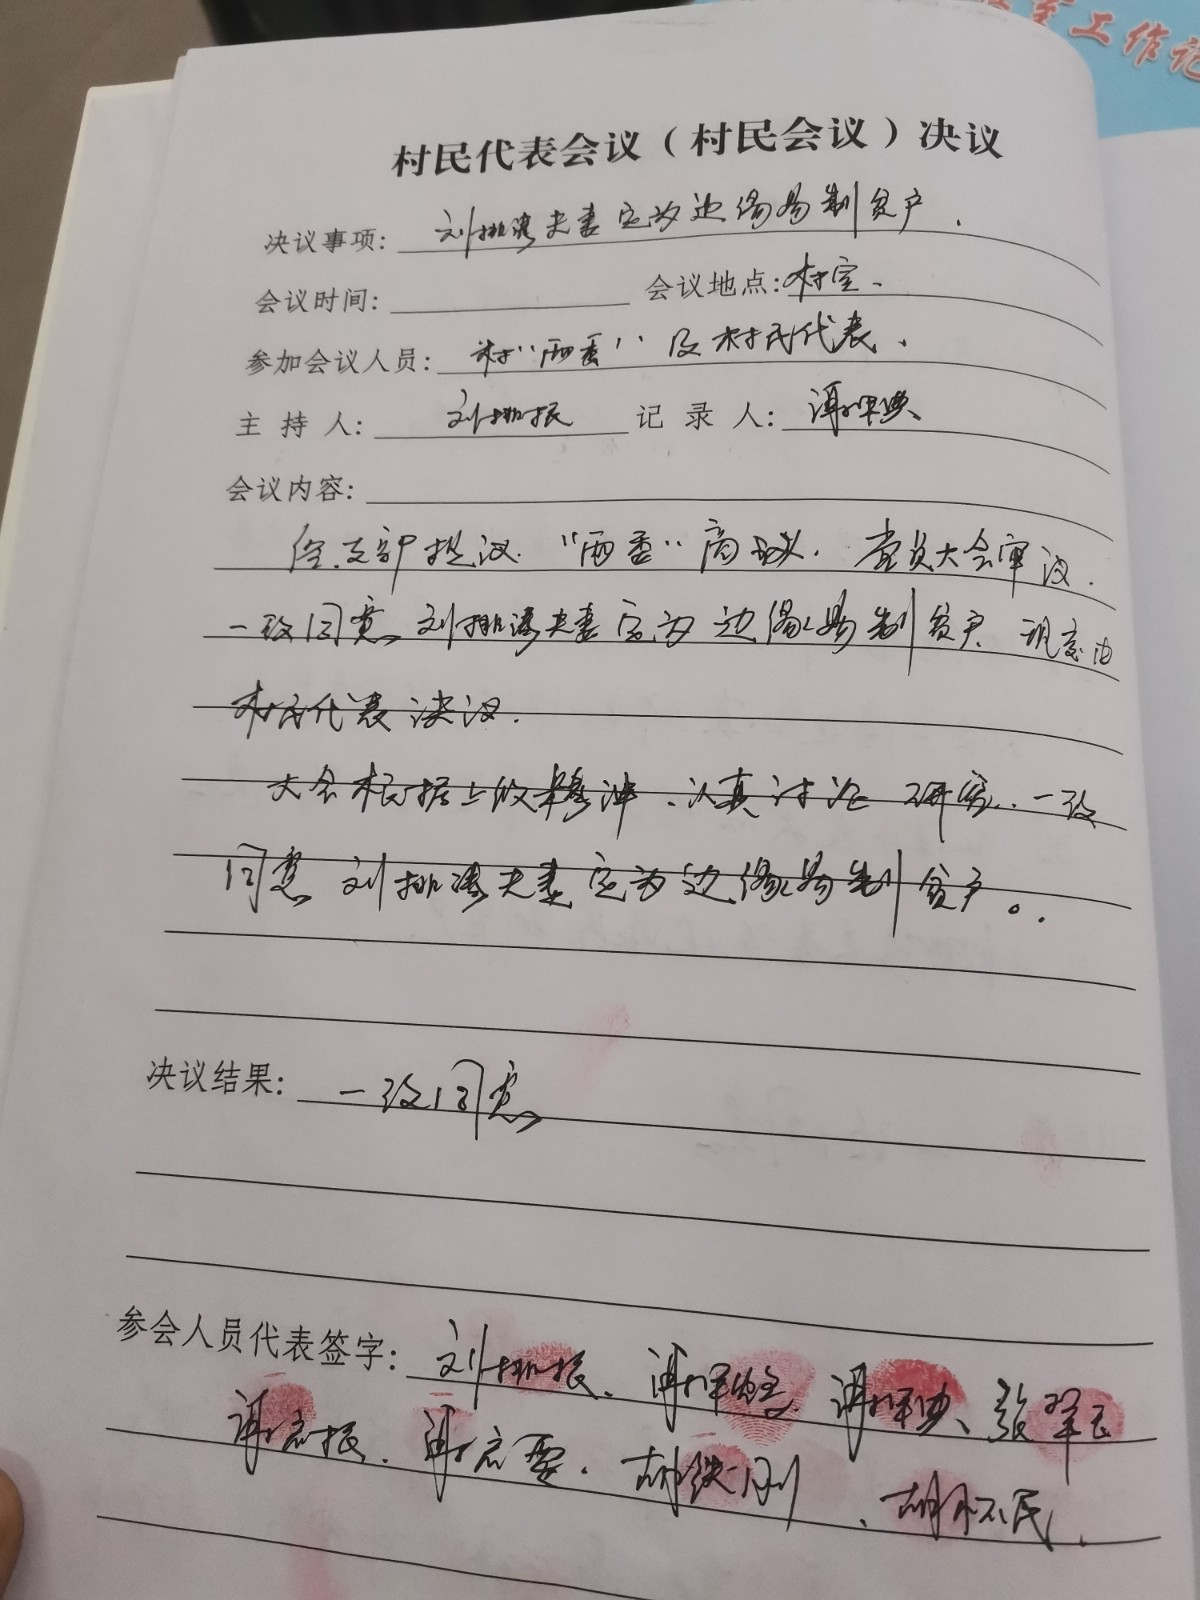 工作记
村民代表会议（村民会议）决议
决议事项: 刘排涛夫妻定为边缘易制贫户.
会议时间: 会议地点: 村室.
参加会议人员: 村"两委"及村民代表.
主持人: 刘排振 记录人:
会议内容:
经支部提议."两委"商议.党员大会审议.
一致同意刘排涛夫妻定为边缘易制贫户.现交由
村民代表决议.
大会根据上级精神.认真讨论研究.一致
同意刘排涛夫妻定为边缘易制贫户。.
决议结果: 一致同意
参会人员代表签字: 刘排振.
胡铁刚